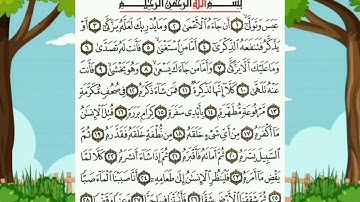 بِسْمِ اللَّهِ الرَّحْمَٰنِ الرَّحِيمِ
عَبَسَ وَتَوَلَّىٰ ١ أَن جَاءَهُ الْأَعْمَىٰ ٢ وَمَا يُدْرِيكَ لَعَلَّهُ يَزَّكَّىٰ ٣ أَوْ
يَذَّكَّرُ فَتَنفَعَهُ الذِّكْرَىٰ ٤ أَمَّا مَنِ اسْتَغْنَىٰ ٥ فَأَنتَ لَهُ تَصَدَّىٰ ٦
وَمَا عَلَيْكَ أَلَّا يَزَّكَّىٰ ٧ وَأَمَّا مَن جَاءَكَ يَسْعَىٰ ٨ وَهُوَ يَخْشَىٰ ٩ فَأَنتَ
عَنْهُ تَلَهَّىٰ ١٠ كَلَّا إِنَّهَا تَذْكِرَةٌ ١١ فَمَن شَاءَ ذَكَرَهُ ١٢ فِي صُحُفٍ مُّكَرَّمَةٍ
١٣ مَّرْفُوعَةٍ مُّطَهَّرَةٍ ١٤ بِأَيْدِي سَفَرَةٍ ١٥ كِرَامٍ بَرَرَةٍ ١٦ قُتِلَ الْإِنسَانُ
مَا أَكْفَرَهُ ١٧ مِنْ أَيِّ شَيْءٍ خَلَقَهُ ١٨ مِن نُّطْفَةٍ خَلَقَهُ فَقَدَّرَهُ ١٩ ثُمَّ
السَّبِيلَ يَسَّرَهُ ٢٠ ثُمَّ أَمَاتَهُ فَأَقْبَرَهُ ٢١ ثُمَّ إِذَا شَاءَ أَنشَرَهُ ٢٢ كَلَّا لَمَّا
يَقْضِ مَا أَمَرَهُ ٢٣ فَلْيَنظُرِ الْإِنسَانُ إِلَىٰ طَعَامِهِ ٢٤ أَنَّا صَبَبْنَا الْمَاءَ صَبًّا
٢٥ ثُمَّ شَقَقْنَا الْأَرْضَ شَقًّا